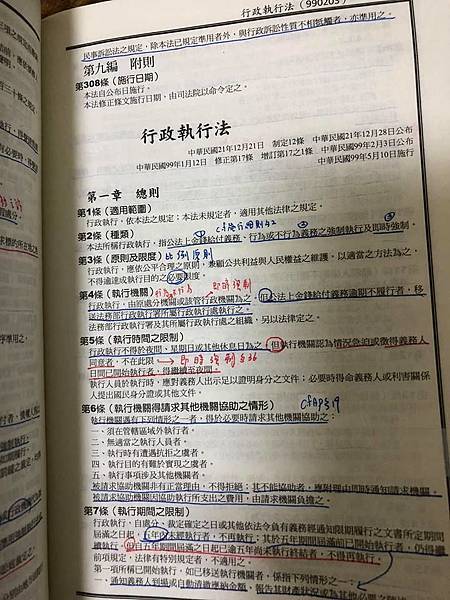 行政執行法（990203）
民事訴訟法之規定，除本法已規定準用者外，與行政訴訟性質不相牴觸者，亦準用之。
第九編　附則
第308條（施行日期）
本法自公布日施行。
本法修正條文施行日期，由司法院以命令定之。
行政執行法
中華民國21年12月21日　制定12條　中華民國21年12月28日公布
中華民國99年1月12日　修正第17條　增訂第17之1條　中華民國99年2月3日公布
中華民國99年5月10日施行
第一章　總則
第1條（適用範圍）
行政執行，依本法之規定；本法未規定者，適用其他法律之規定。
第2條（種類）
本法所稱行政執行，指公法上金錢給付義務、行為或不行為義務之強制執行及即時強制。
第3條（原則及限度）比例原則
行政執行，應依公平合理之原則，兼顧公共利益與人民權益之維護，以適當之方法為之，
不得逾達成執行目的之必要限度。
第4條（執行機關）
即時強制
行政執行，由原處分機關或該管行政機關為之。但公法上金錢給付義務逾期不履行者，移
送法務部行政執行署所屬行政執行處執行之。
法務部行政執行署及其所屬行政執行處之組織，另以法律定之。
第5條（執行時間之限制）
行政執行不得於夜間、星期日或其他休息日為之。但執行機關認為情況急迫或徵得義務人
同意者，不在此限。
即時強制§36
日間已開始執行者，得繼續至夜間。
執行人員於執行時，應對義務人出示足以證明身分之文件；必要時得命義務人或利害關係
人提出國民身分證或其他文件。
第6條（執行機關得請求其他機關協助之情形）
cf AP§19
執行機關遇有下列情形之一者，得於必要時請求其他機關協助之：
一、須在管轄區域外執行者。
二、無適當之執行人員者。
三、執行時有遭遇抗拒之虞者。
四、執行目的有難於實現之虞者。
五、執行事項涉及其他機關者。
被請求協助機關非有正當理由，不得拒絕；其不能協助者，應附理由即時通知請求機關。
被請求協助機關因協助執行所支出之費用，由請求機關負擔之。
第7條（執行期間之限制）
行政執行，自處分、裁定確定之日或其他依法令負有義務經通知限期履行之文書所定期間
屆滿之日起，五年內未經執行者，不再執行；其於五年期間屆滿前已開始執行者，仍得繼
續執行。但自五年期間屆滿之日起已逾五年尚未執行終結者，不得再執行。
前項規定，法律有特別規定者，不適用之。
第一項所稱已開始執行，如已移送執行機關者，係指下列情形之一：
一、通知義務人到場或自動清繳應納金額、報告其財產狀況或為其他必要之陳述